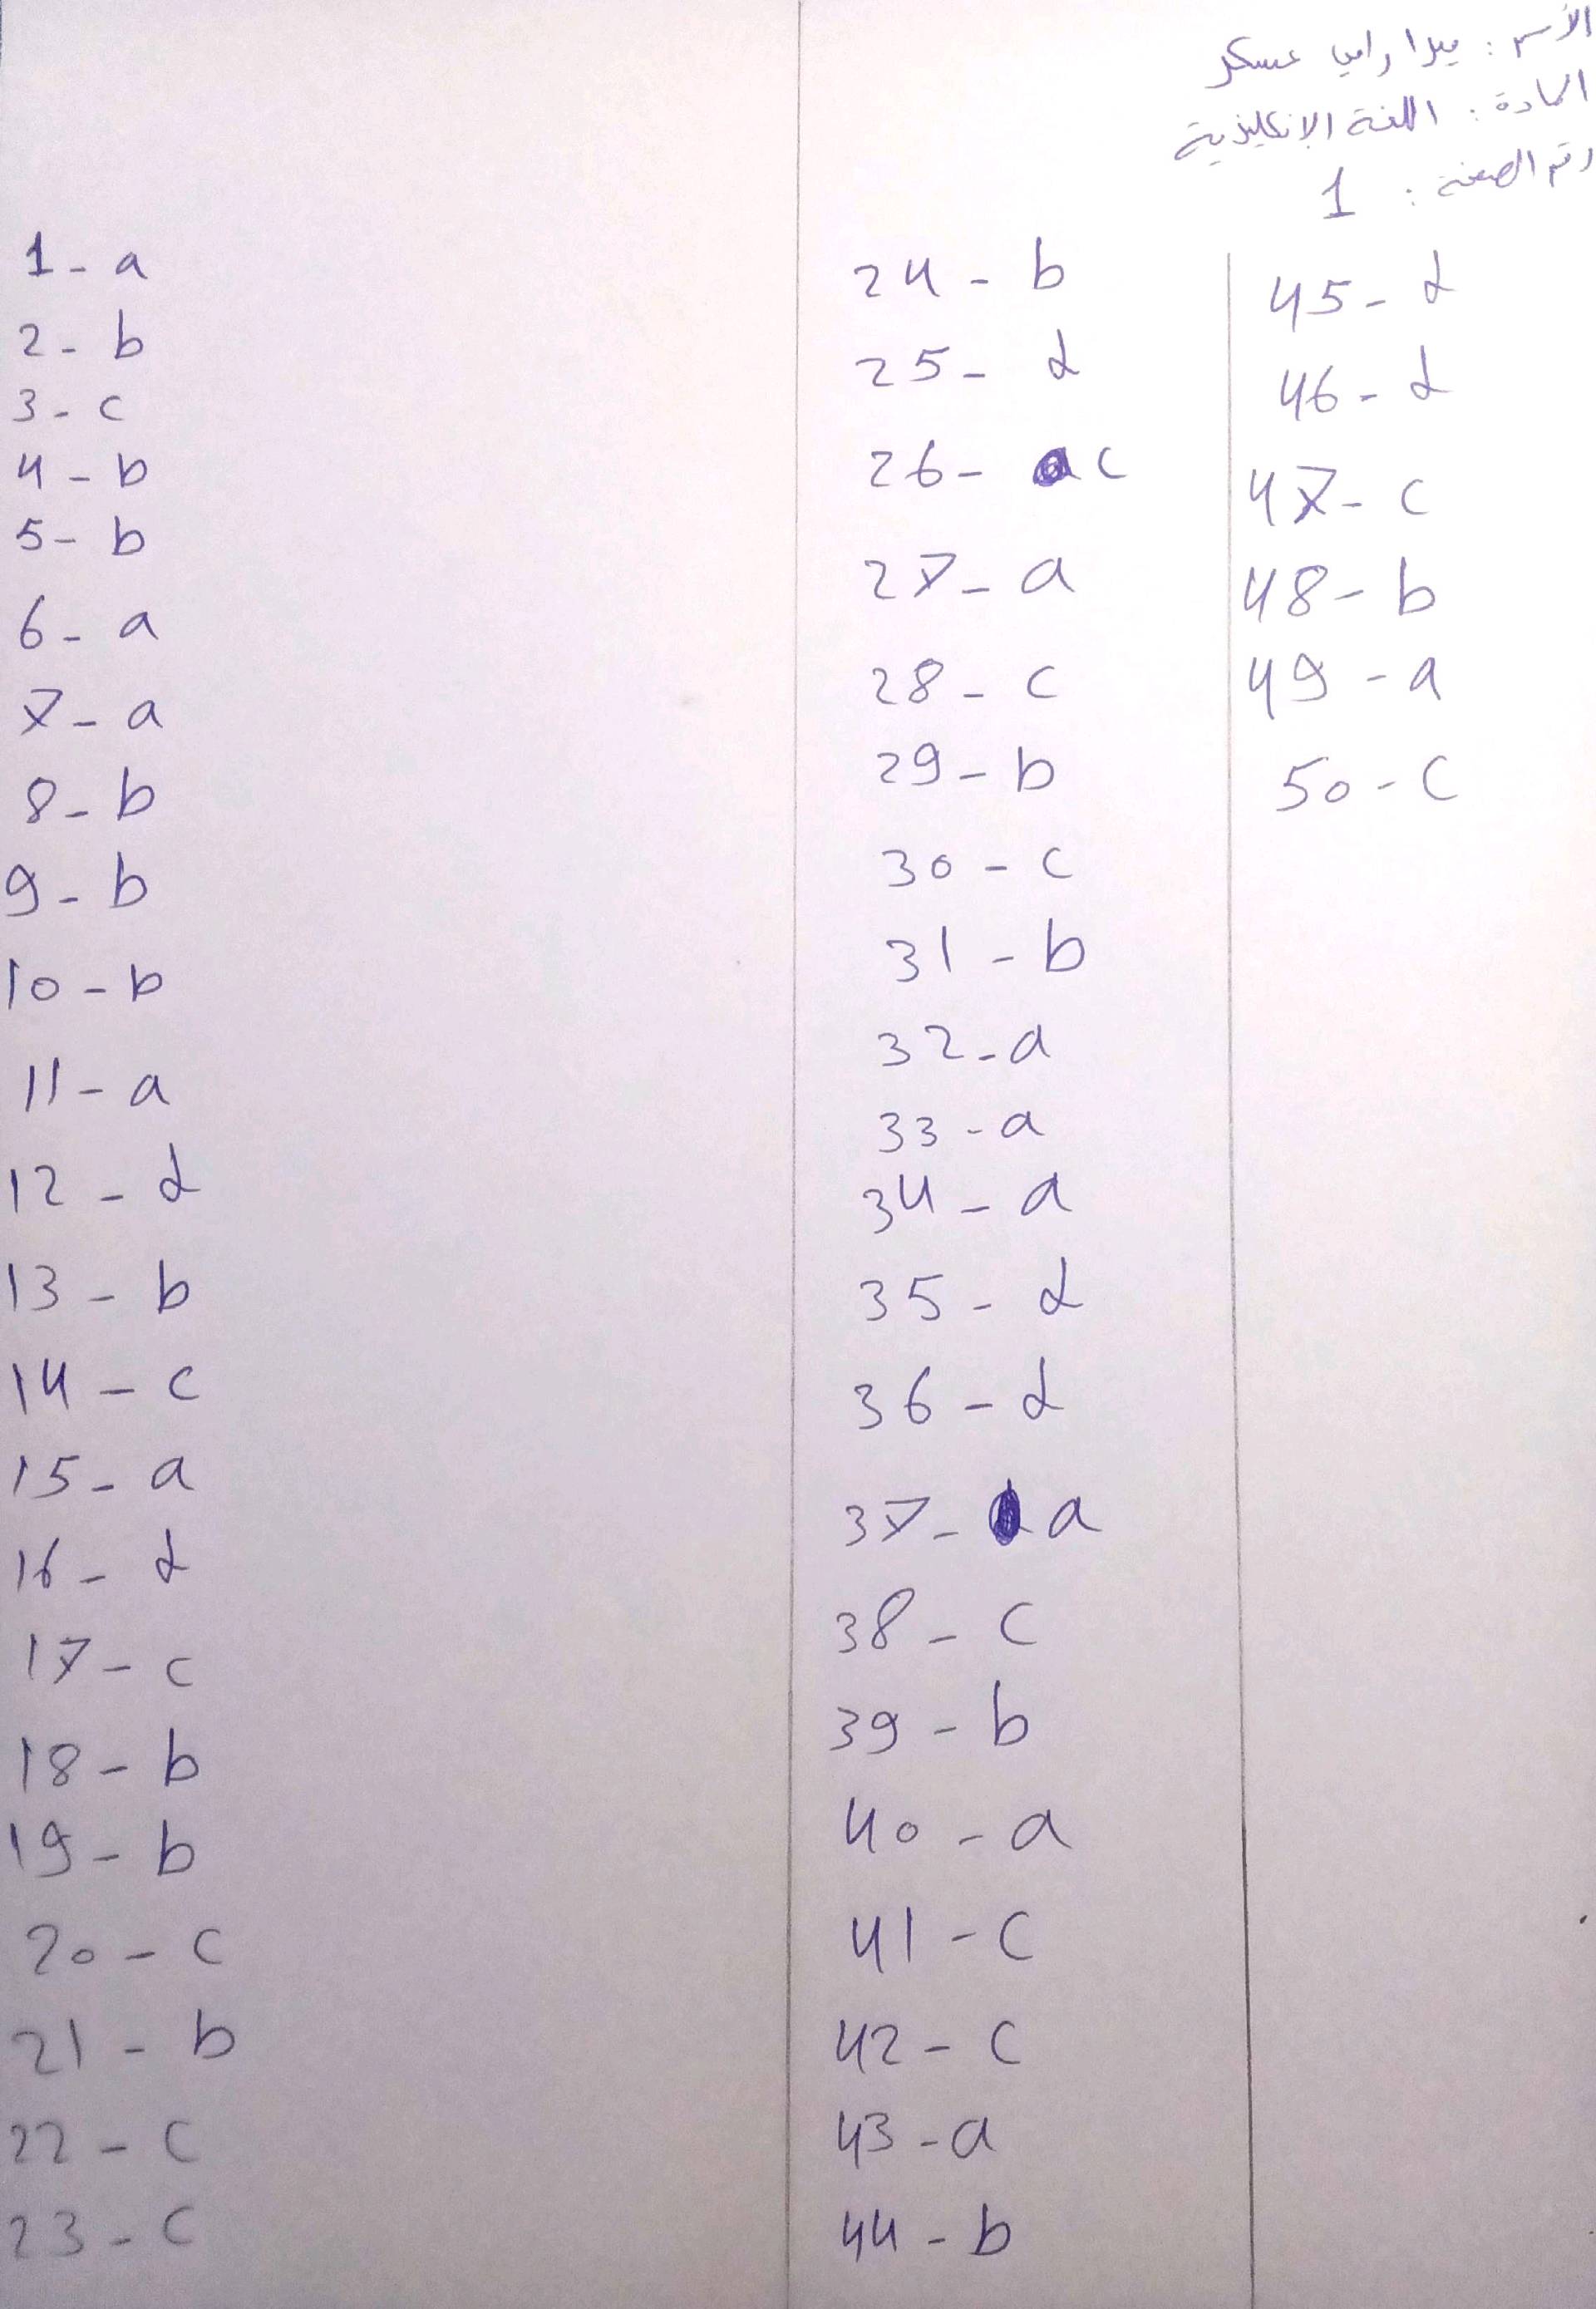 الاسم : ميرا رامي عسكر
المادة : اللغة الإنكليزية
رقم الصفحة : 1
1 - a
2 - b
3 - c
4 - b
5 - b
6 - a
7 - a
8 - b
9 - b
10 - b
11 - a
12 - d
13 - b
14 - c
15 - a
16 - d
17 - c
18 - b
19 - b
20 - c
21 - b
22 - c
23 - c
24 - b
25 - d
26 - c
27 - a
28 - c
29 - b
30 - c
31 - b
32 - a
33 - a
34 - a
35 - d
36 - d
37 - a
38 - c
39 - b
40 - a
41 - c
42 - c
43 - a
44 - b
45 - d
46 - d
47 - c
48 - b
49 - a
50 - c